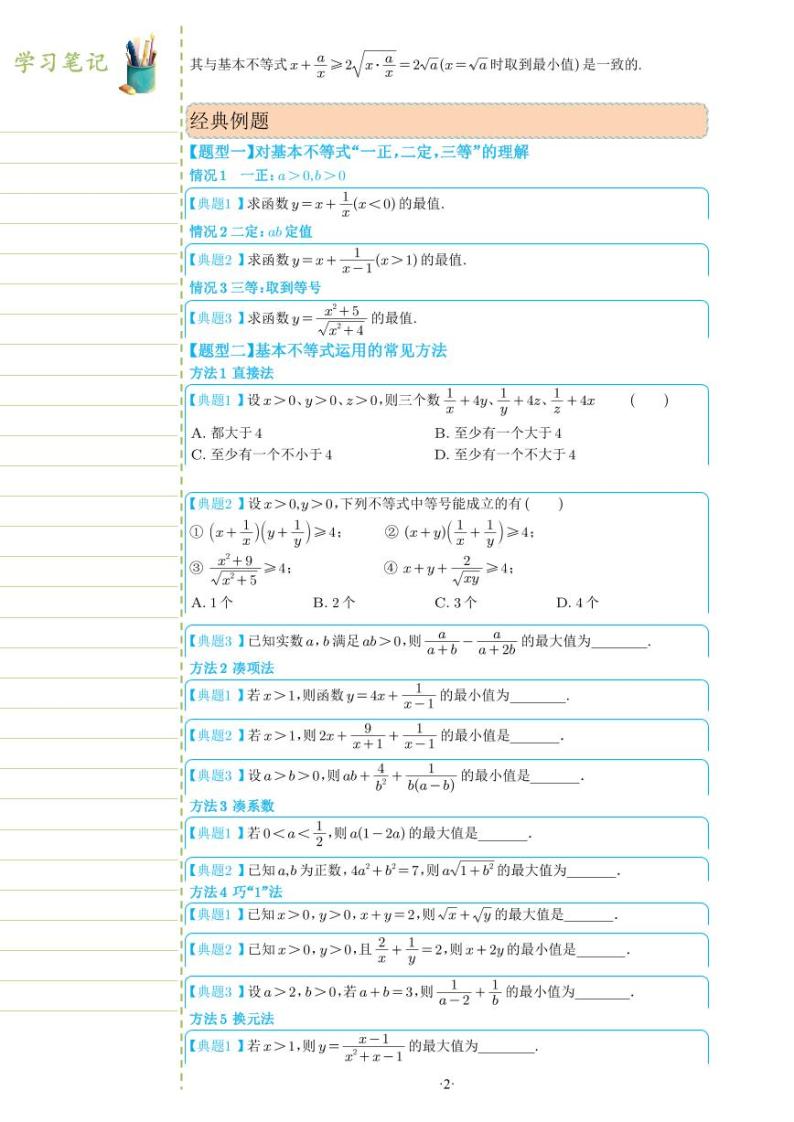 学习笔记
其与基本不等式 x+a/x⩾2√(x·a/x)=2√a(x=√a 时取到最小值) 是一致的.
经典例题
【题型一】对基本不等式“一正,二定,三等”的理解
情况1 一正: a>0,b>0
【典题1】求函数 y=x+1/x(x<0) 的最值.
情况2 二定: ab 定值
【典题2】求函数 y=x+1/(x-1)(x>1) 的最值.
情况3 三等:取到等号
【典题3】求函数 y=(x²+5)/√(x²+4) 的最值.
【题型二】基本不等式运用的常见方法
方法1 直接法
【典题1】设 x>0、y>0、z>0,则三个数 1/x+4y、1/y+4z、1/z+4x ( )
A. 都大于4 B. 至少有一个大于4
C. 至少有一个不小于4 D. 至少有一个不大于4
【典题2】设 x>0,y>0,下列不等式中等号能成立的有 ( )
① (x+1/x)(y+1/y)⩾4; ② (x+y)(1/x+1/y)⩾4;
③ (x²+9)/√(x²+5)⩾4; ④ x+y+2/√(xy)⩾4;
A. 1个 B. 2个 C. 3个 D. 4个
【典题3】已知实数 a, b 满足 ab>0,则 a/(a+b)-a/(a+2b) 的最大值为________.
方法2 凑项法
【典题1】若 x>1,则函数 y=4x+1/(x-1) 的最小值为________.
【典题2】若 x>1,则 2x+9/(x+1)+1/(x-1) 的最小值是_______.
【典题3】设 a>b>0,则 ab+4/b²+1/(b(a-b)) 的最小值是_______.
方法3 凑系数
【典题1】若 0<a<1/2,则 a(1-2a) 的最大值是_______.
【典题2】已知 a,b 为正数, 4a²+b²=7,则 a√(1+b²) 的最大值为_______.
方法4 巧“1”法
【典题1】已知 x>0, y>0, x+y=2,则 √x+√y 的最大值是_______.
【典题2】已知 x>0, y>0,且 2/x+1/y=2,则 x+2y 的最小值是_______.
【典题3】设 a>2, b>0,若 a+b=3,则 1/(a-2)+1/b 的最小值为________.
方法5 换元法
【典题1】若 x>1,则 y=(x-1)/(x²+x-1) 的最大值为________.
·2·